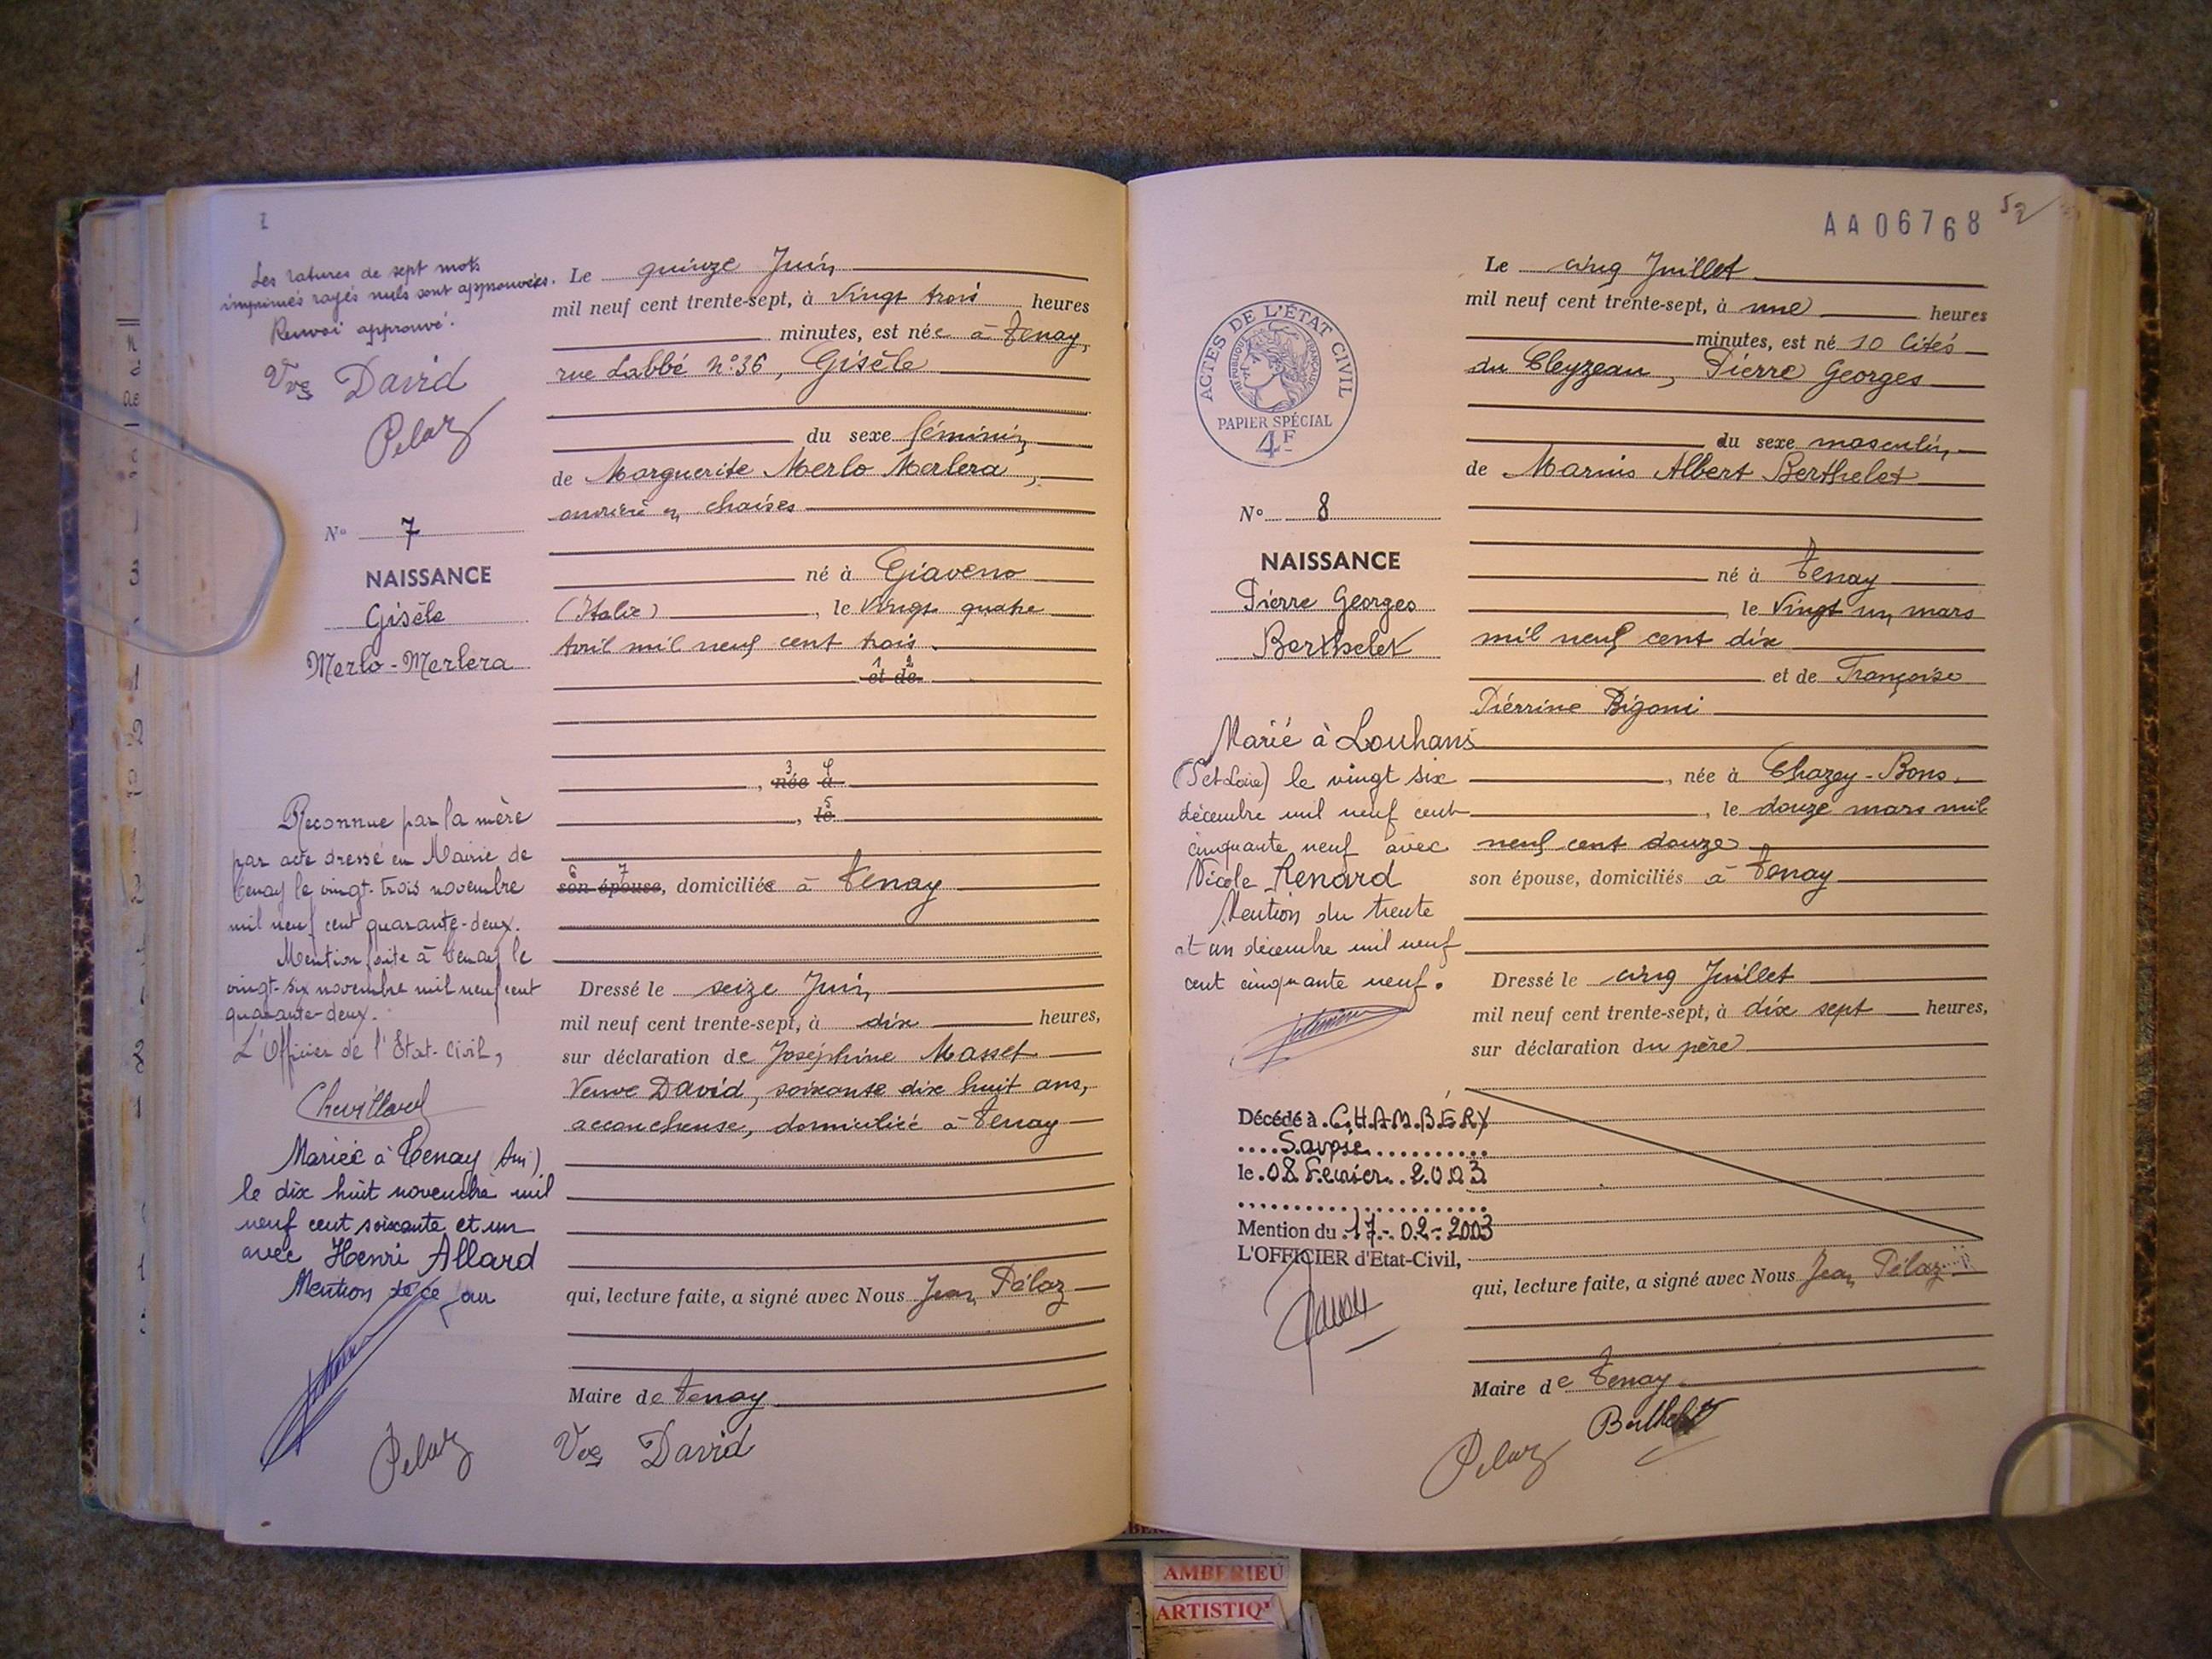 Les ratures de sept mots
imprimés rayés nuls sont approuvées.
Renvoi approuvé.
Vve David
Pelaz
N° 7
NAISSANCE
Gisèle
Merlo-Merlera
Reconnue par la mère
par acte dressé en Mairie de
Tenay le vingt-trois novembre
mil neuf cent quarante-deux.
Mention faite à Tenay le
vingt-six novembre mil neuf cent
quarante-deux.
L'Officier de l'Etat-Civil,
Chevillard
Mariée à Tenay (Ain)
le dix huit novembre mil
neuf cent soixante et un
avec Henri Allard
Mention de ce jour
Le quinze Juin
mil neuf cent trente-sept, à vingt trois heures
minutes, est née à Tenay,
rue Labbé N°36, Gisèle
du sexe féminin
de Marguerite Merlo Merlera,
ouvrière en chaises
né à Giaveno
(Italie), le vingt quatre
Avril mil neuf cent trois.
1 2
et de
3 4
, née à
5
, le
6 7
son épouse, domiciliée à Tenay
Dressé le seize Juin
mil neuf cent trente-sept, à dix heures,
sur déclaration de Joséphine Masset
Veuve David, soixante dix huit ans,
accoucheuse, domiciliée à Tenay
qui, lecture faite, a signé avec Nous Jean Pélaz
Maire de Tenay
Pelaz Vve David
AA06768 52
ACTES DE L'ÉTAT CIVIL
RÉPUBLIQUE FRANÇAISE
PAPIER SPÉCIAL
4F
N° 8
NAISSANCE
Pierre Georges
Berthelet
Marié à Louhans
(S et Loire) le vingt six
décembre mil neuf cent
cinquante neuf avec
Nicole Renard
Mention du trente
et un décembre mil neuf
cent cinquante neuf.
Décédé à CHAMBÉRY
Savoie
le 08 Février 2003
Mention du 17-02-2003
L'OFFICIER d'Etat-Civil,
Le cinq Juillet
mil neuf cent trente-sept, à une heures
minutes, est né 10 Cités
du Cleyzeau, Pierre Georges
du sexe masculin
de Marius Albert Berthelet
né à Tenay
, le vingt un mars
mil neuf cent dix
et de Françoise
Pierrine Bigoni
, née à Chazey-Bons
, le douze mars mil
neuf cent douze
son épouse, domiciliés à Tenay
Dressé le cinq Juillet
mil neuf cent trente-sept, à dix sept heures,
sur déclaration du père
qui, lecture faite, a signé avec Nous Jean Pélaz
Maire de Tenay
Pelaz Berthelet
AMBERIEU
ARTISTIQ'